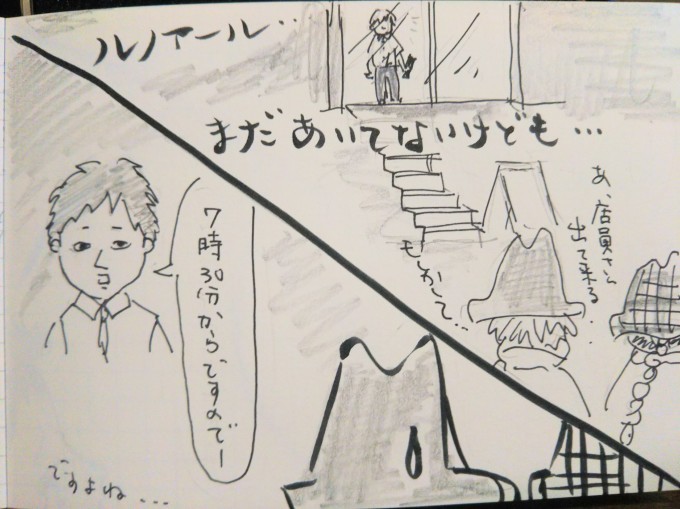 ルノアール‥
まだあいてないけども…
あ、店員さん
出て来る
もしかして‥
7時30分からですのでー
ですよね…